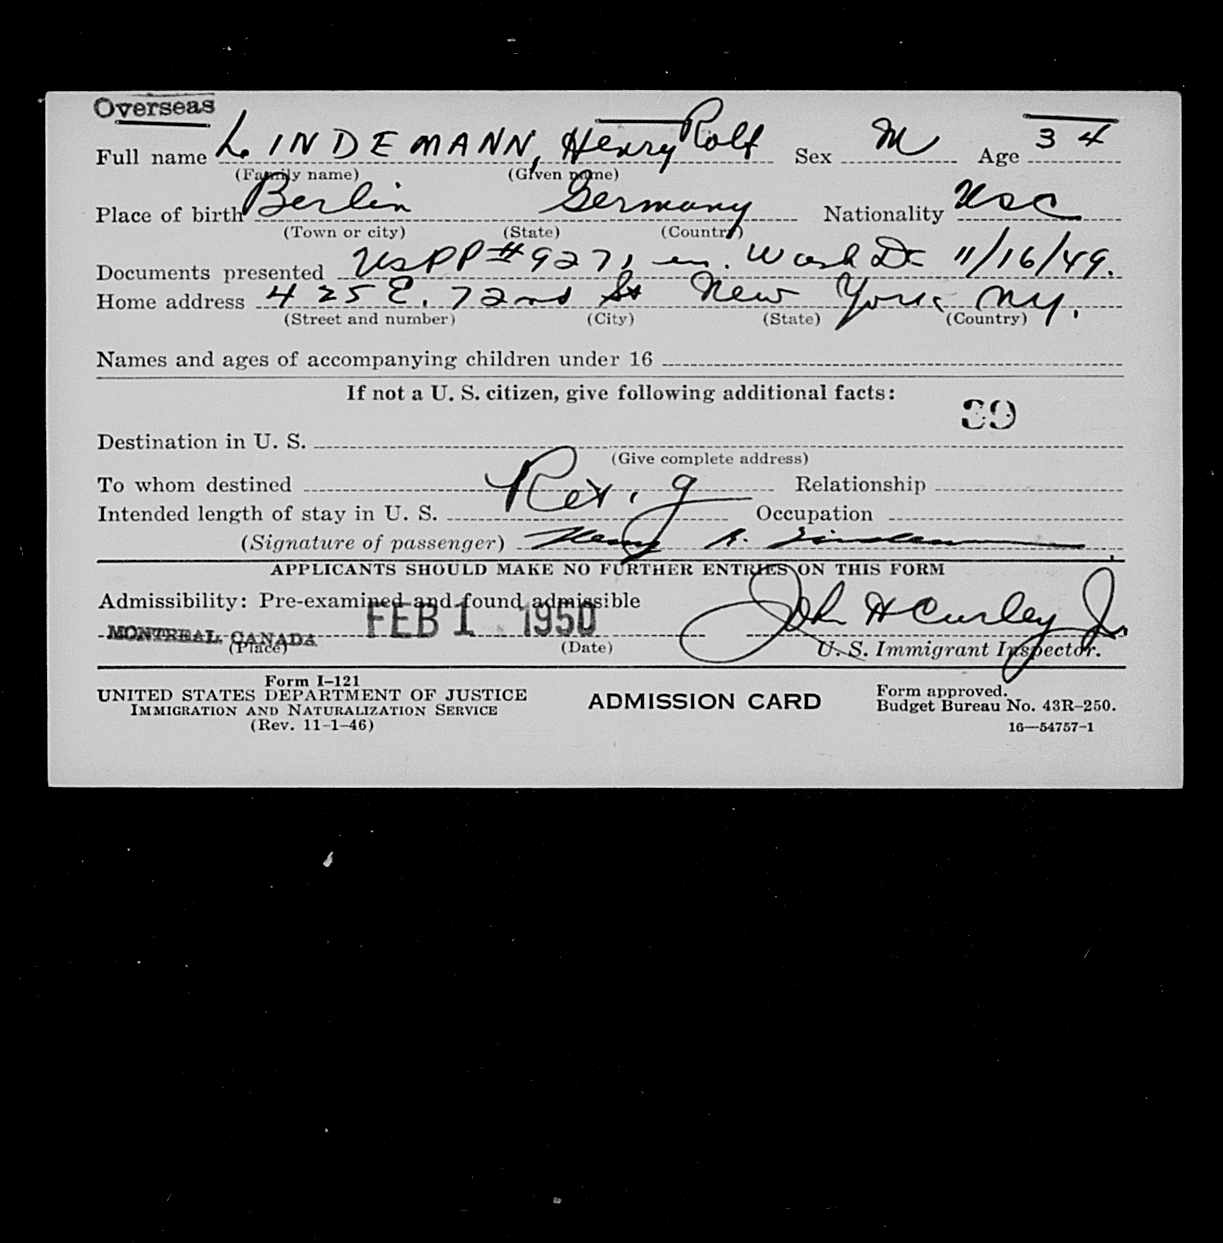 Overseas
Full name LINDEMANN, Henry Rolf Sex M Age 34
(Family name) (Given name)
Place of birth Berlin Germany Nationality USC
(Town or city) (State) (Country)
Documents presented USPP # 927, in. Wash DC 11/16/49.
Home address 425 E. 72nd St New York NY.
(Street and number) (City) (State) (Country)
Names and ages of accompanying children under 16
If not a U. S. citizen, give following additional facts:
39
Destination in U. S.
(Give complete address)
To whom destined Relationship
Intended length of stay in U. S. Occupation
(Signature of passenger) Henry R. Lindemann
APPLICANTS SHOULD MAKE NO FURTHER ENTRIES ON THIS FORM
Admissibility: Pre-examined and found admissible
MONTREAL, CANADA FEB 1 1950 John H Curley Jr.
(Place) (Date) U. S. Immigrant Inspector.
Form I-121
UNITED STATES DEPARTMENT OF JUSTICE
IMMIGRATION AND NATURALIZATION SERVICE
(Rev. 11-1-46)
ADMISSION CARD
Form approved.
Budget Bureau No. 43R-250.
16—54757-1